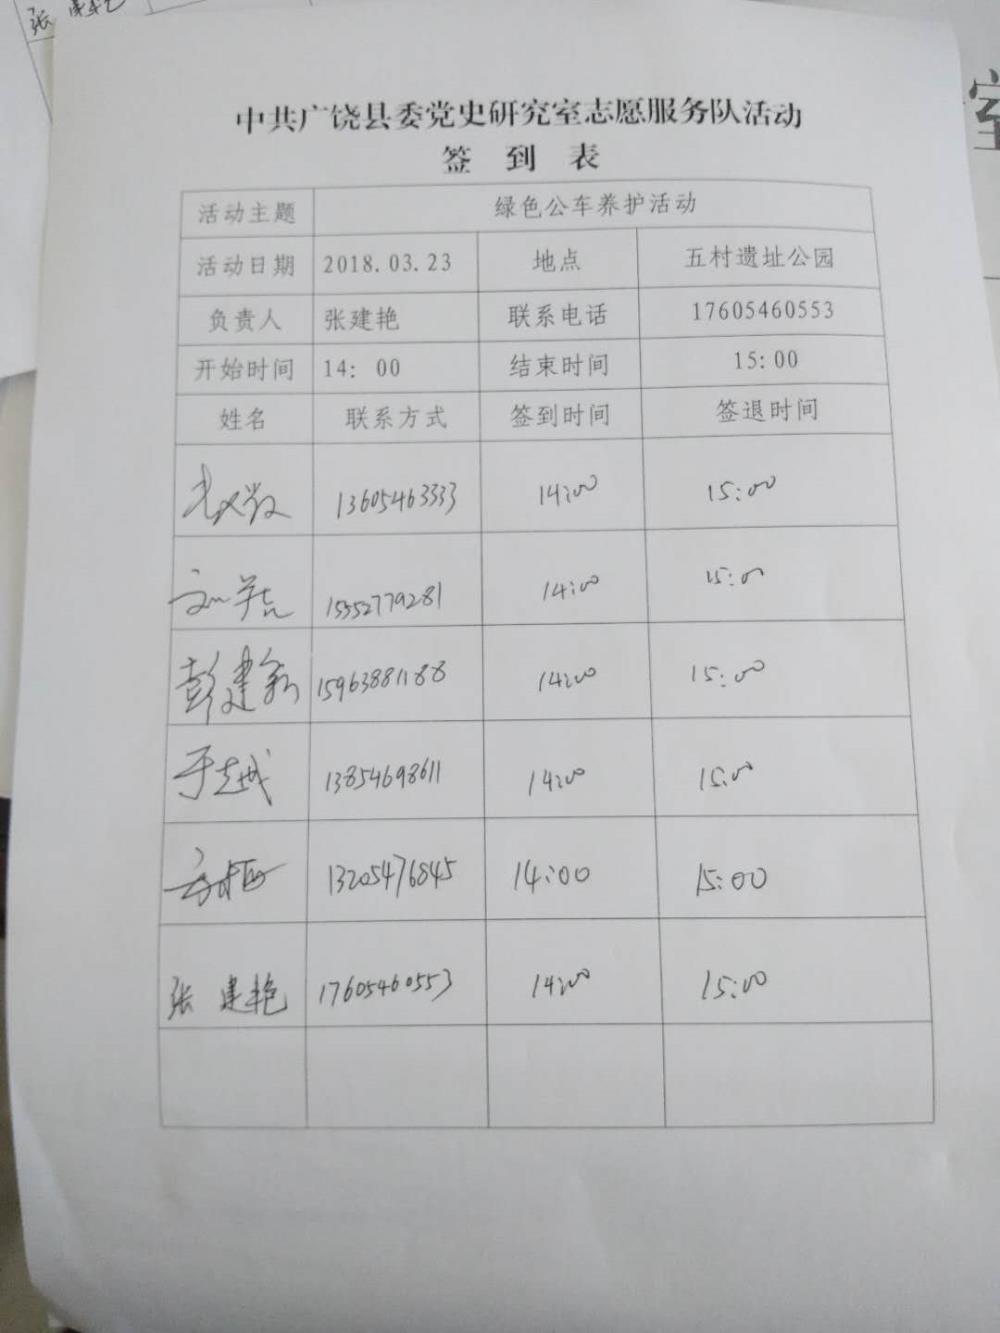 张建艳
室
中共广饶县委党史研究室志愿服务队活动
签 到 表
活动主题 绿色公车养护活动
活动日期 2018.03.23 地点 五村遗址公园
负责人 张建艳 联系电话 17605460553
开始时间 14: 00 结束时间 15:00
姓名 联系方式 签到时间 签退时间
13605463333 14:00 15:00
15552779281 14:00 15:00
彭建新 15963881188 14:00 15:00
于越 13854698611 14:00 15:00
13205476845 14:00 15:00
张 建艳 17605460553 14:00 15:00